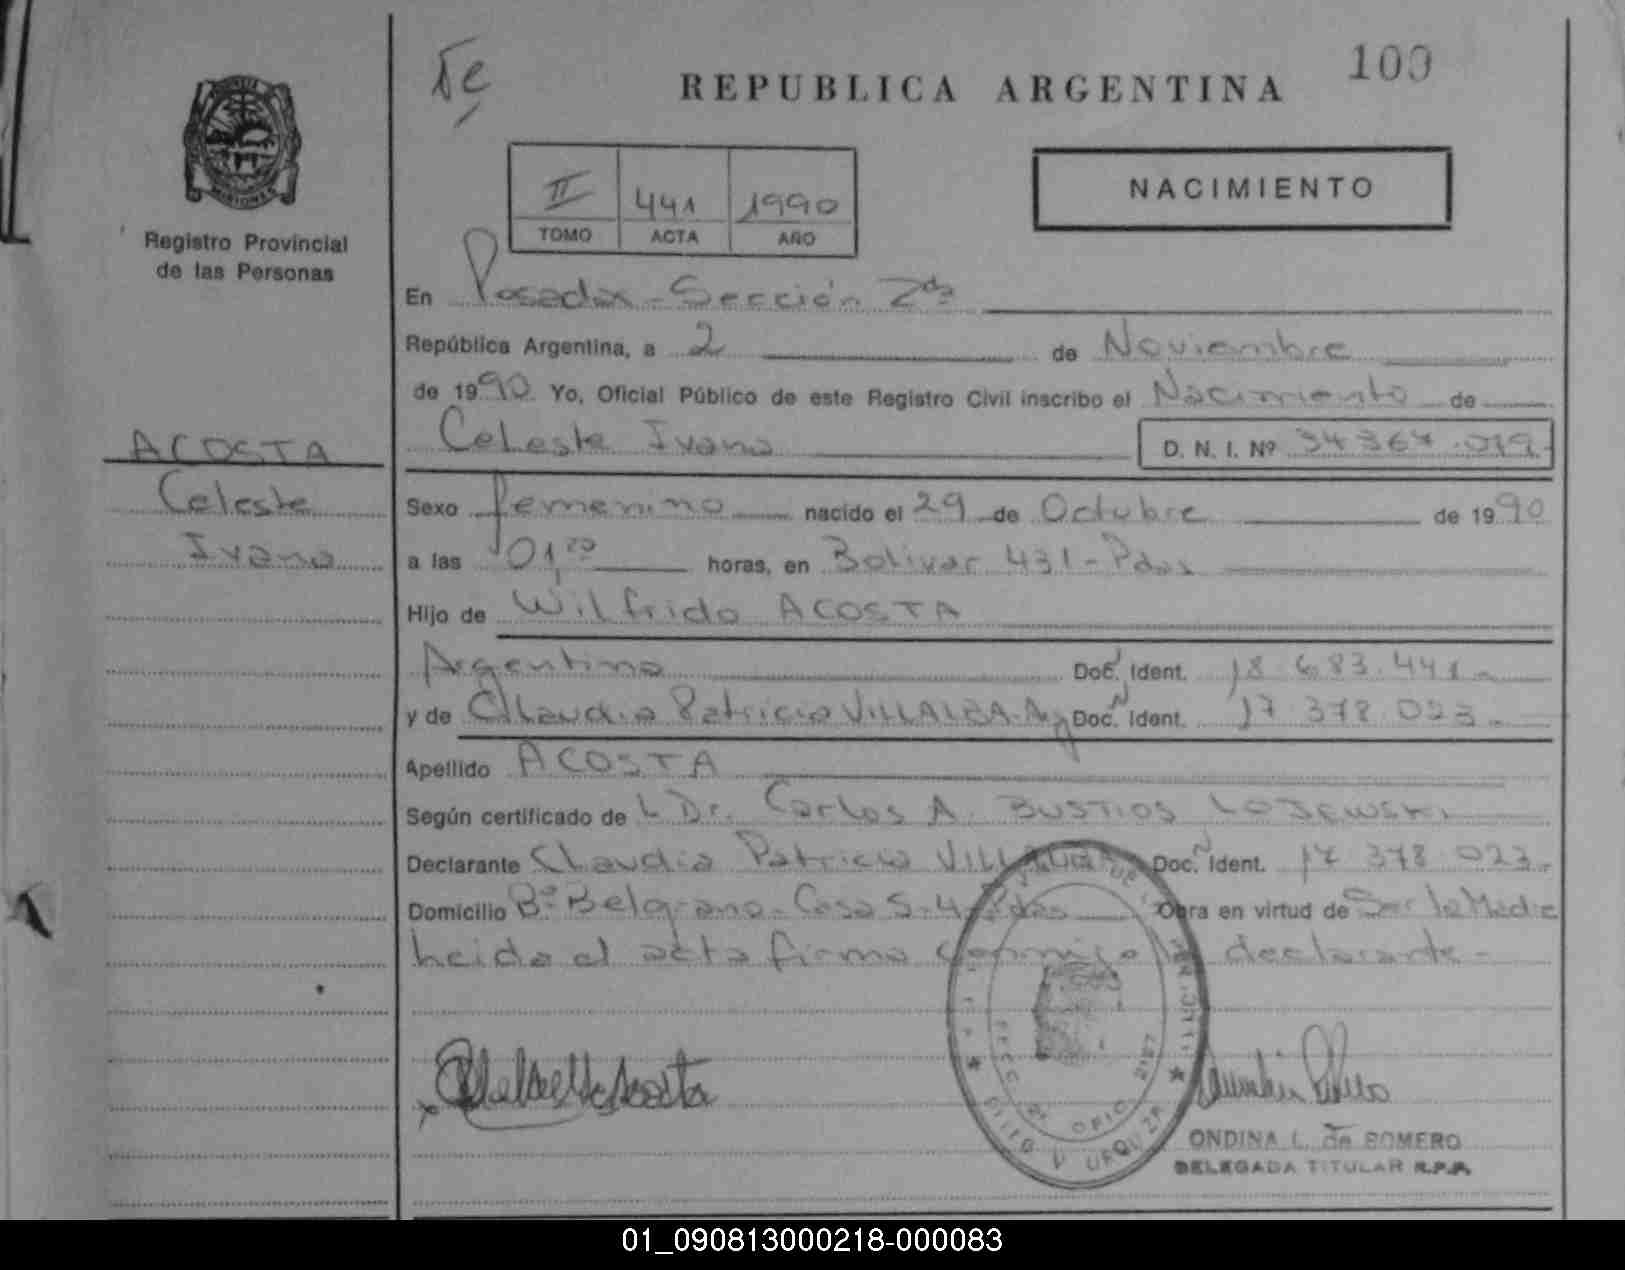 100
REPUBLICA ARGENTINA
NACIMIENTO
II 441 1990
TOMO ACTA AÑO
MISIONES
Registro Provincial
de las Personas
En Posadas - Sección 2da
República Argentina, a 2 de Noviembre
de 1990 Yo, Oficial Público de este Registro Civil inscribo el Nacimiento de
Celeste Ivana D. N. I. Nº 34 367 .019
ACOSTA
Celeste
Ivana
Sexo femenino nacido el 29 de Octubre de 1990
a las 01,20 horas, en Bolivar 431 - Pdas
Hijo de Wilfrido ACOSTA
Argentino Doc. Ident. 18 683.441
y de Claudia Patricia VILLALBA - Arg Doc. Ident. 17 378 023.
Apellido ACOSTA
Según certificado de L Dr. Carlos A. BUSTIOS LOJEWSKI
Declarante Claudia Patricia VILLALBA Doc. Ident. 17 378 023.
Domicilio Bº Belgrano - Casa S-4 Pdas Obra en virtud de Ser la Madre
Leida el acta firma conmigo la declarante -
ONDINA L. de ROMERO
DELEGADA TITULAR R.P.P.
01_090813000218-000083